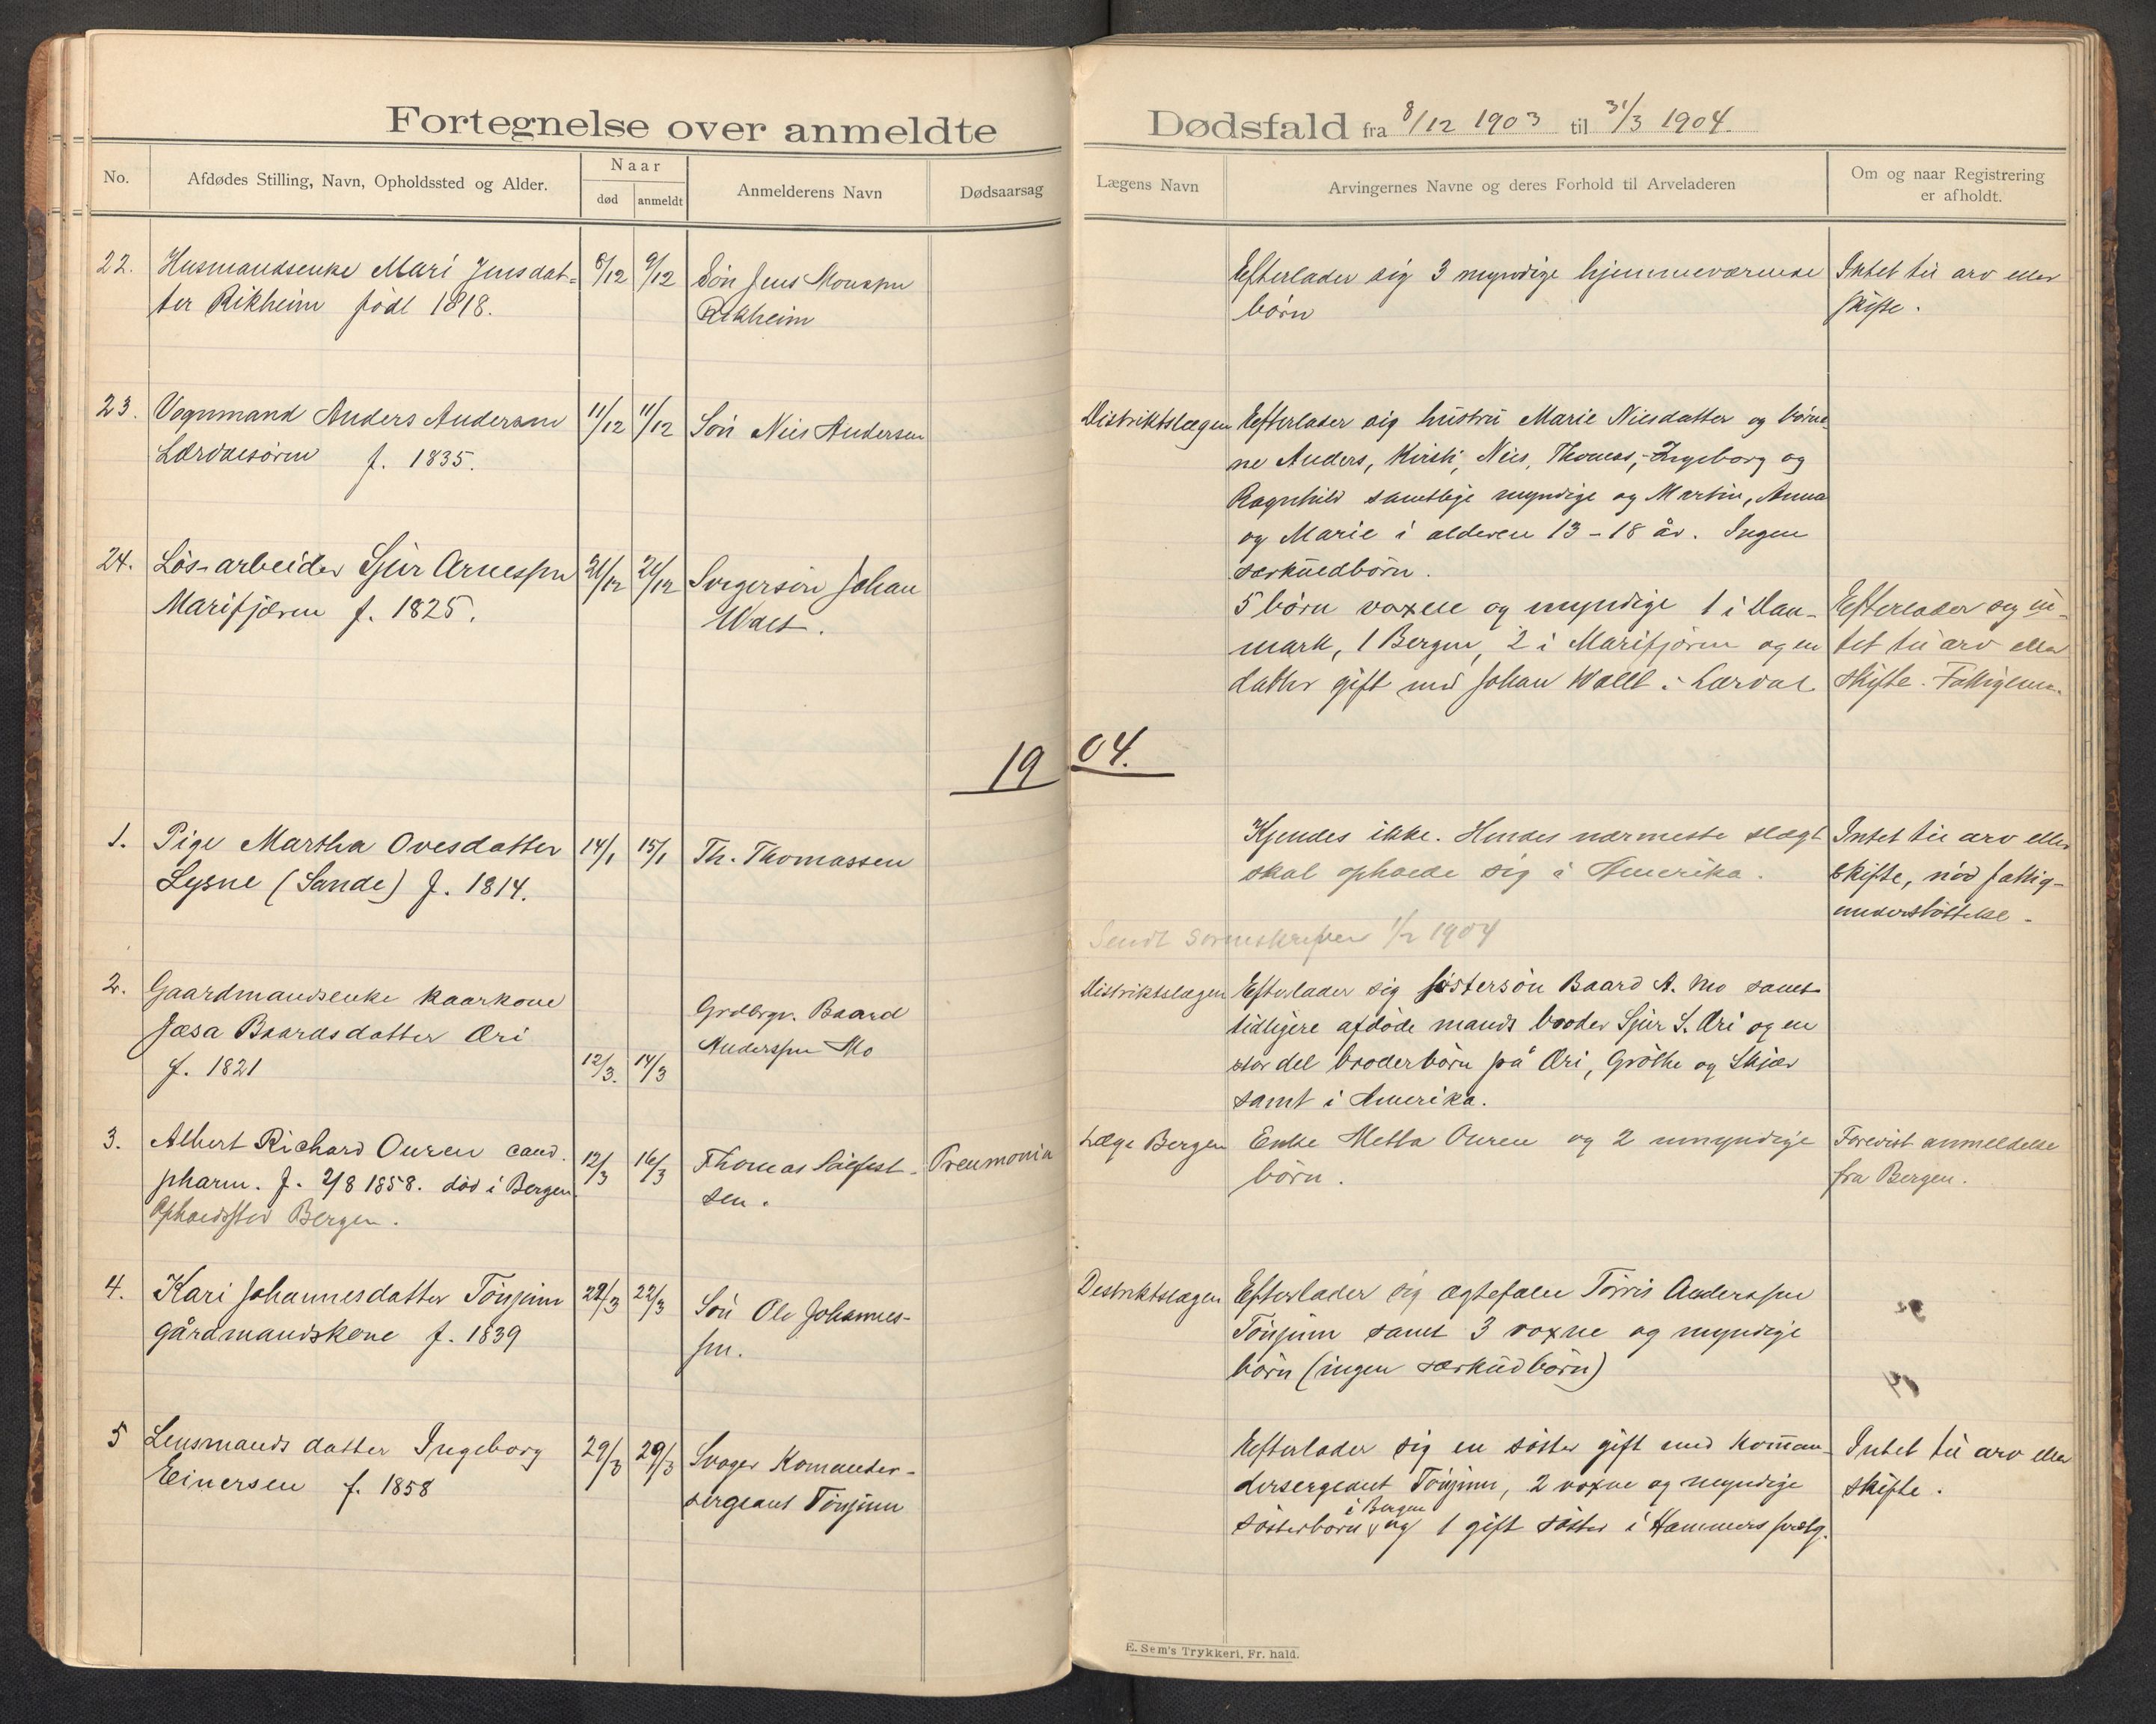 Fortegnelse over anmeldte
No.
Afdødes Stilling, Navn, Opholdssted og Alder.
Naar
død
anmeldt
Anmelderens Navn
Dødsaarsag
22. Husmandsenke Mari Jensdat- 8/12 9/12 Søn Jens Monsen
ter Rikheim født 1818. Rikheim
23. Vognmand Anders Andersen 11/12 11/12 Søn Nils Andersen
Lærdalsøren f. 1835.
24. Løs-arbeider Sjur Arnesen 21/12 21/12 Svigersøn Johan
Marifjæren f. 1825. Wall.
19
1. Pige Martha Ovesdatter 14/1 15/1 Th. Thomassen
Lysne (Sande) f. 1814.
2. Gaardmandsenke kaarkone Grdbrgr. Baard
Jæsa Baardsdatter Øri Andersen Mo
f. 1821 12/3. 14/3
3. Albert Richard Ouren cand. 12/3 16/3 Thomas Pneumonia
pharm. f. 2/8 1858. død i Bergen. sen.
Opholdssted Bergen.
4. Kari Johannesdatter Tønjum 22/3 22/3 Søn Ole Johannes-
gårdmandskone f. 1839 sen.
5 Lensmands datter Ingeborg 29/3 29/3 Svoger Komander-
Einersen f. 1858 sergeant Tønjum
Dødsfald fra 8/12 1903 til 31/3 1904.
Lægens Navn
Arvingernes Navne og deres Forhold til Arveladeren
Om og naar Registrering
er afholdt.
Efterlader sig 3 myndige hjemmeværende Intet til arv eller
børn skifte.
Distriktslægen Efterlader sig hustru Marie Nilsdatter og børne-
ne Anders, Kirsti, Nils, Thomas, Ingeborg og
Ragnhild samtlige myndige og Martin, Anna
og Marie i alderen 13-18 år. Ingen
særkuldbørn.
5 børn voxne og myndige 1 i Dan- Efterlader sig in-
mark, 1 Bergen, 2 i Marifjøren og en tet til arv eller
datter gift med Johan Wall i Lærdal skifte.
04.
Kjendes ikke. Hendes nærmeste slægt Intet til arv eller
skal opholde sig i Amerika. skifte, nød fattig-
understøttelse.
Sendt sorenskriveren 1/2 1904
Distriktslægen Efterlader sig søstersøn Baard A. Mo samt
tidligere afdøde mands broder Sjur S. Øri og en
stor del broderbørn på Øri, Grøthe og Skjær
samt i Amerika.
Læge Bergen Enke Metta Ouren og 2 umyndige Forevist anmeldelse
børn. fra Bergen.
Destriktslægen Efterlader sig ægtefælle Torris Andersen
Tønjum samt 3 voxne og myndige
børn (ingen særkuldbørn)
Efterlader sig en søster gift med Koman- Intet til arv eller
dersergeant Tønjum, 2 voxne og myndige skifte.
i Bergen
søsterbørn og 1 gift søster i Hammers prælg.
E. Sem's Trykkeri, Fr. hald.